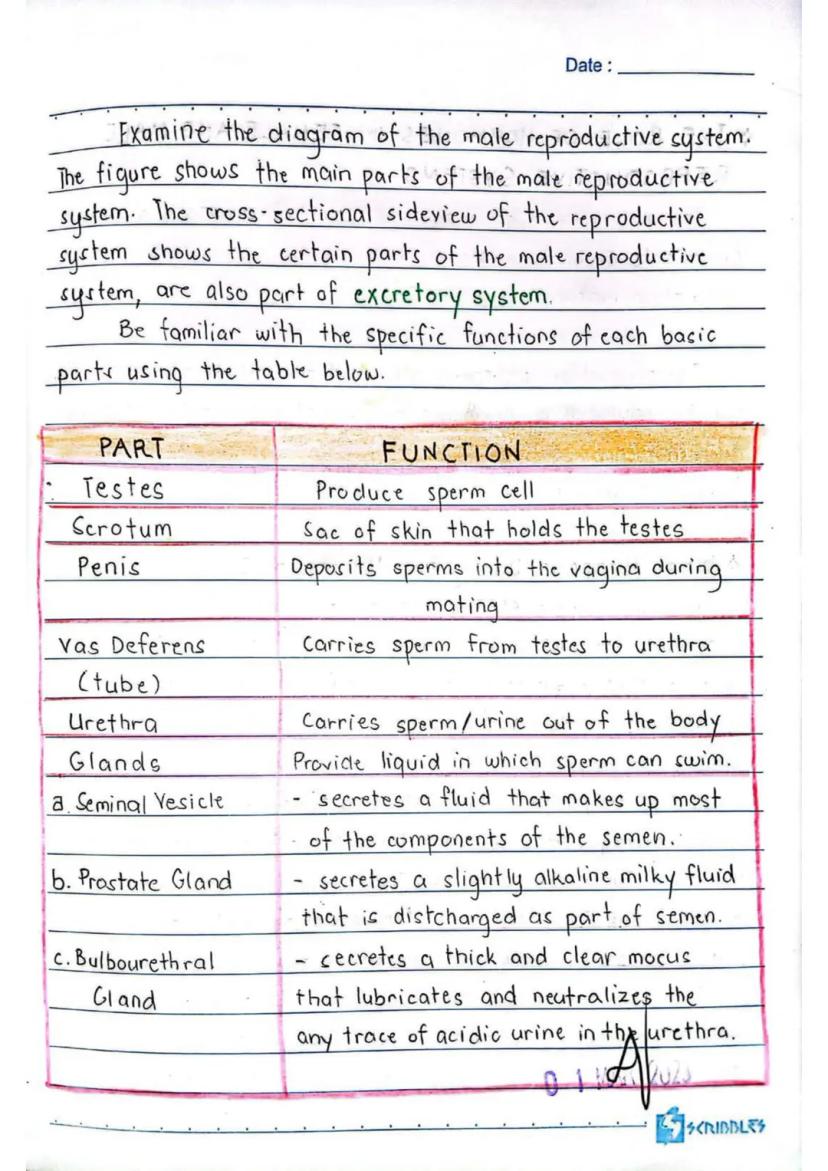 Date :
Examine the diagram of the male reproductive system.
The figure shows the main parts of the male reproductive
system. The cross-sectional sideview of the reproductive
system shows the certain parts of the male reproductive
system, are also part of excretory system.
Be familiar with the specific functions of each basic
parts using the table below.
PART FUNCTION
Testes Produce sperm cell
Scrotum Sac of skin that holds the testes
Penis Deposits sperms into the vagina during
mating
Vas Deferens Carries sperm from testes to urethra
(tube)
Urethra Carries sperm/urine out of the body
Glands Provide liquid in which sperm can swim.
a. Seminal Vesicle - secretes a fluid that makes up most
of the components of the semen.
b. Prostate Gland - secretes a slightly alkaline milky fluid
that is distcharged as part of semen.
c. Bulbourethral - cecretes a thick and clear mocus
Gland that lubricates and neutralizes the
any trace of acidic urine in the urethra.
0 1
SCRIBBLES